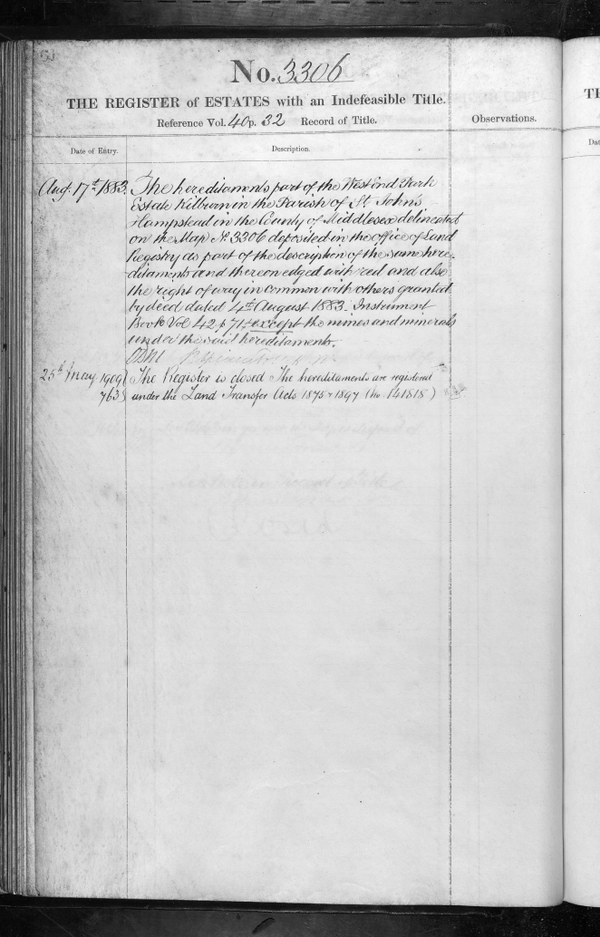 No. 3306
THE REGISTER of ESTATES with an Indefeasible Title.
Reference Vol. 40 p. 32 Record of Title.
Observations.
Date of Entry.
Description.
Aug. 17th 1883. The hereditaments part of the West End Park
Estate Kilburn in the Parish of St. Johns
Hampstead in the County of Middlesex delineated
on the Map No. 3306 deposited in the office of Land
Registry as part of the description of the same here-
ditaments and thereon edged with red and also
the right of way in common with others granted
by deed dated 4th August 1883. Instrument
Book Vol 42 p 71 except the mines and minerals
under the said hereditaments.
25th May 1909 The Register is closed The hereditaments are registered
763 under the Land Transfer Acts 1875 & 1897 (No. 141818)
TH
Dat